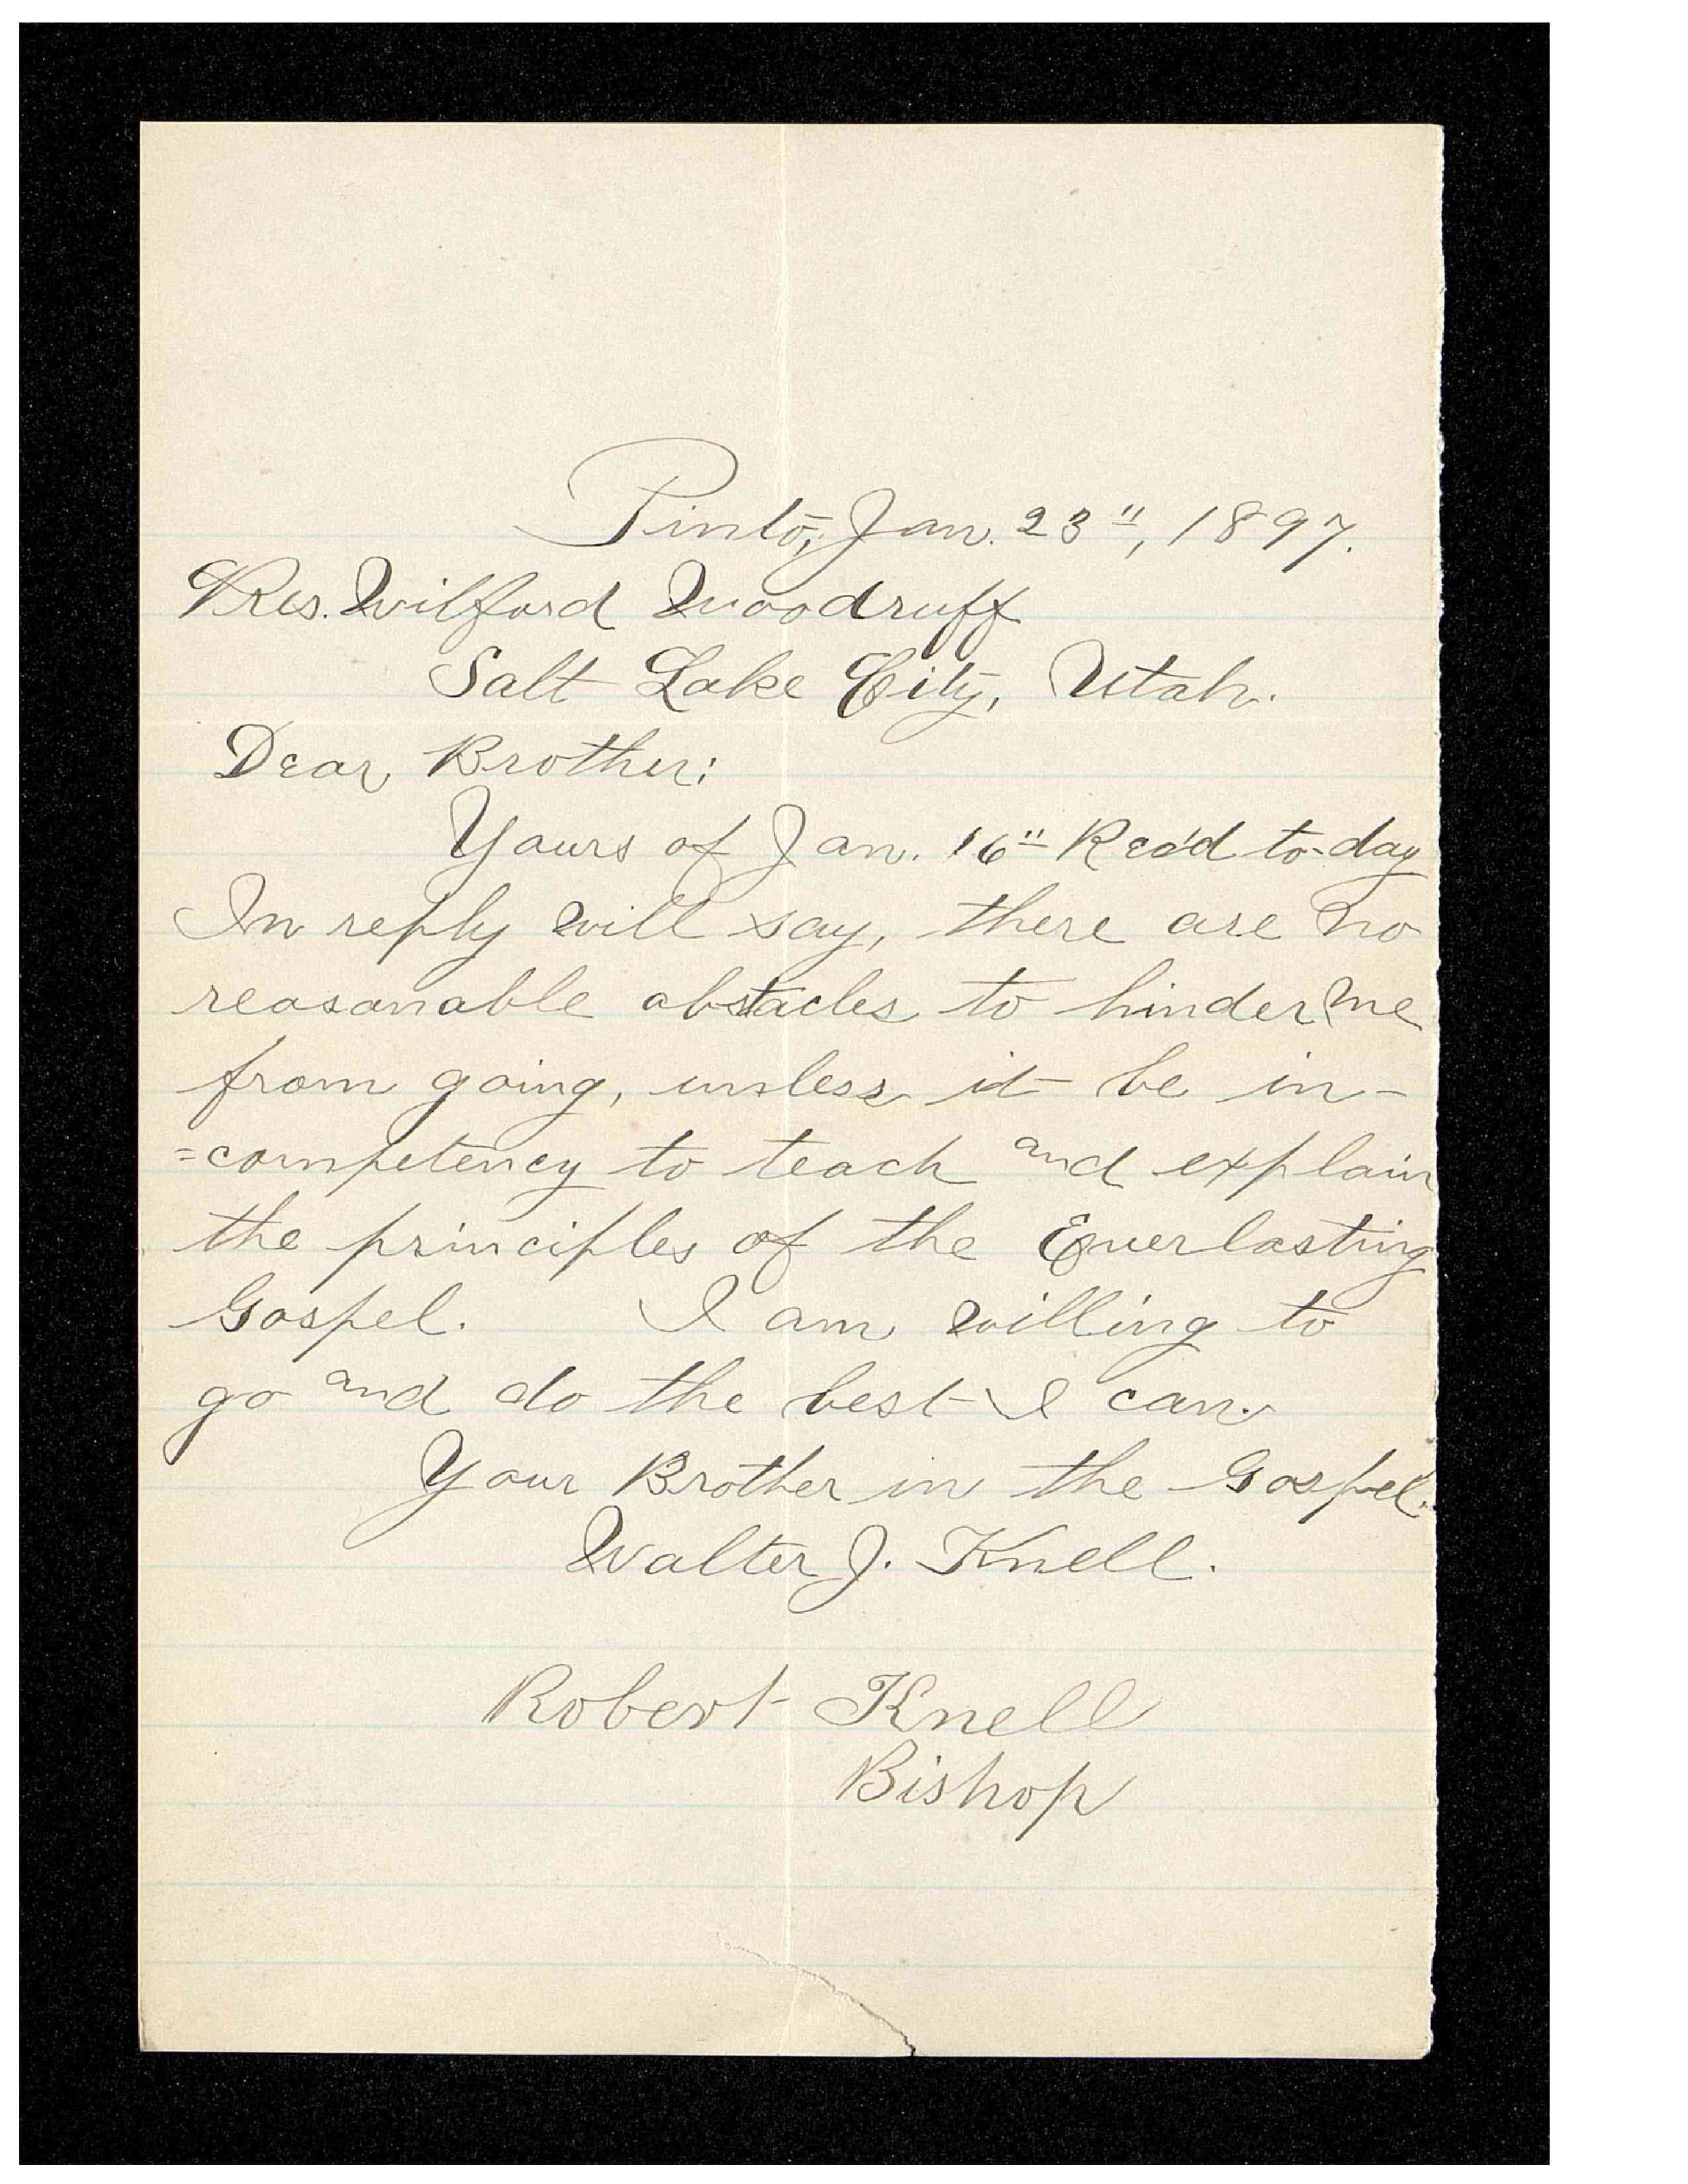 Pinto, Jan. 23", 1897.
Pres. Wilford Woodruff
Salt Lake City, Utah.
Dear Brother:
Yours of Jan. 16" Rec'd to-day
In reply will say, there are no
reasonable obstacles to hinder me
from going, unless it be in-
=competency to teach and explain
the principles of the Everlasting
Gospel. I am willing to
go and do the best I can.
Your Brother in the Gospel.
Walter J. Knell.
Robert Knell
Bishop